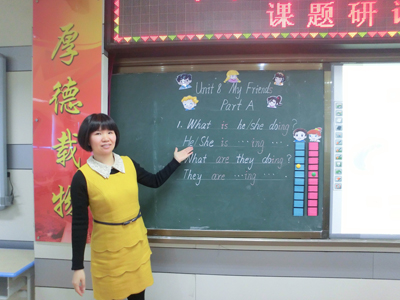 课题研讨
厚德载物
Unit 8 My Friends
Part A
1. What is he/she doing?
He/She is ···ing ···.
What are they doing?
They are ···ing ···.